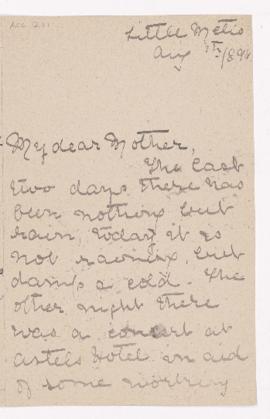 Acc 231
Little Metis
Aug 1894
My dear Mother,
The last
two days there has
been nothing but
rain, today it is
not raining, but
damp & cold. The
other night there
was a concert at
Astels Hotel in aid
of some